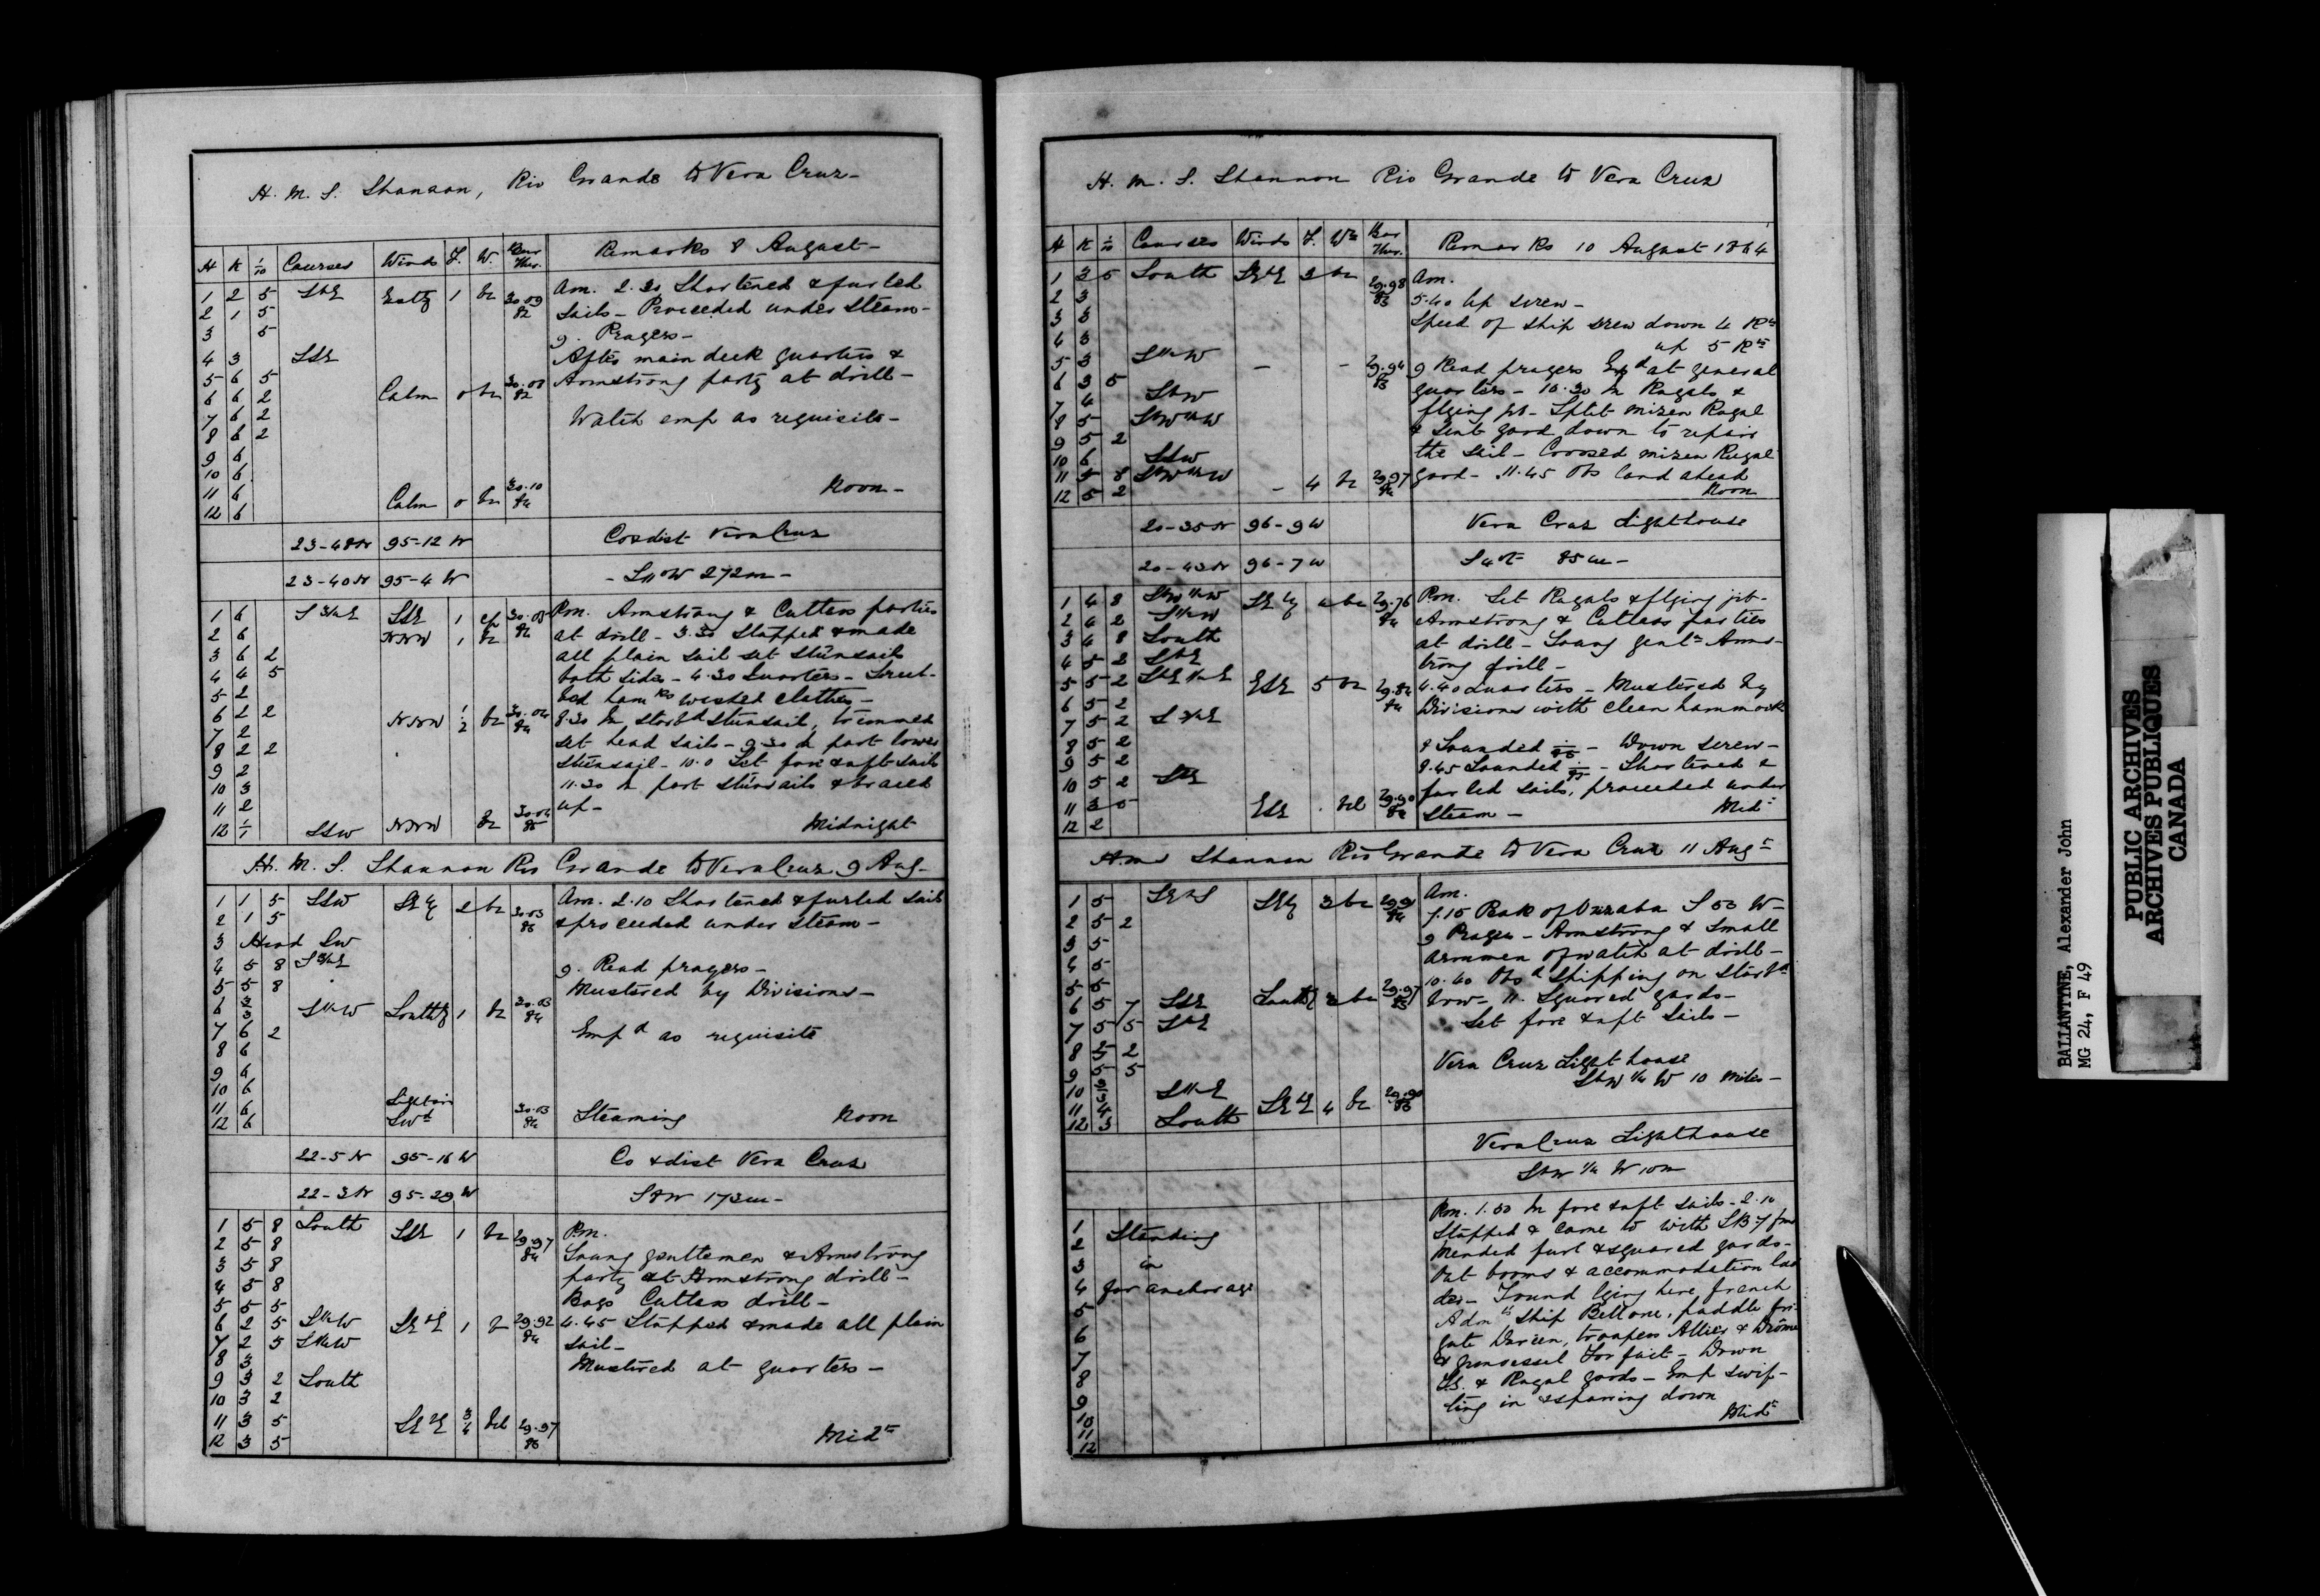 H. M. S. Shannon, Rio Grande to Vera Cruz-
H K 1/10 Courses Winds F. W. Bar Ther. Remarks 8 August-
1 2 5 SbE Eastly 1 bc 30.09 82 Am. 2.30 Shortened & furled
2 1 5 sails - Proceeded under steam-
3 5 9. Prayers-
4 3 SSE After main deck quarters &
5 6 5 Armstrong party at drill-
6 6 2 Calm 0 bc 30.08 82
7 6 2 Watch emp as requisite-
8 6 2
9 6
10 6
11 6 Noon-
12 6 Calm 0 bc 30.10 84
23-48N 95-12 W Co & dist Vera Cruz
23-40N 95-4 W - S11°W 272m-
1 6 S3/4E SSE 1 30.08 84 Pm. Armstrong & Cutlass parties
2 6 NNW 1 bc at drill - 3.30 Stopped & made
3 6 2 all plain sail set stunsails
4 4 5 both sides - 4.30 Quarters - Scrub-
5 2 bed hamks washed clothes-
6 2 2 NNW 1/2 bc 30.04 84 8.30 In starbd stunsails, trimmed
7 2 set head sails - 9.30 In port lower
8 2 2 stunsail - 10.0 Set fore & aft sails
9 2 11.30 In port stunsails & braced
10 3 up-
11 2
12 1/1 SSW NNW bc 30.04 85 Midnight
H. M. S. Shannon Rio Grande to Vera Cruz 9 Aug-
1 1 5 SSW SEly 2 bc 30.03 86 Am. 2.10 Shortened & furled sails
2 1 5 & proceeded under steam-
3 Head SW
4 5 8 S3/4E 9. Read prayers-
5 5 8 Mustered by Divisions-
6 3/3 S1/2W Southly 1 bc 30.03 84
7 6 2 Empd as requisite
8 6
9 6
10 6
11 6 Light airs
12 6 SWd 30.03 84 Steaming Noon
22-5 N 95-16 W Co & dist Vera Cruz
22-3 N 95-29 W S8W 173m-
1 5 8 South SSE 1 bc 29.97 84 Pm.
2 5 8 Young gentlemen & Armstrong
3 5 8 party at Armstrong drill-
4 5 8 Boys Cutlass drill-
5 5 5 4.45 Stopped & made all plain
6 2 5 S1/2W SEbE 1 29.92 84 sail-
7 2 5 S1/4W Mustered at quarters-
8 3
9 3 2 South
10 3 2
11 3 5 SEbE 3/4 bcl 29.97 86
12 3 5 Midt
H. M. S. Shannon Rio Grande to Vera Cruz
H K 1/10 Courses Winds F. Wr Bar Ther. Remarks 10 August 1864
1 3 5 South SEbE 3 bc 29.98 83 Am.
2 3 5.40 Up screw-
3 3 Speed of ship screw down 4 Kts
4 3 up 5 Kts
5 3 S1/2W - - 29.94 83 9 Read prayers Expd at general
6 3 5 quarters - 10.30 In Royals &
7 4 SbW flying jib - Split mizen Royal
8 5 SbW1/2W & sent yard down to repair
9 5 2 the sail - Crossed mizen Royal
10 6 SSW yard - 11.45 Obs land ahead
11 5 8 SbW1/2W Noon
12 5 2 - 4 bc 29.97 84
20-35N 96-9W Vera Cruz Lighthouse
20-43N 96-7W S4°E 85m-
1 4 8 SbW1/2W SEly 4 bc 29.76 84 Pm. Set Royals & flying jib-
2 4 2 S1/2W Armstrong & Cutlass parties
3 4 8 South at drill - Young gentn Arms-
4 5 2 SbE trong drill-
5 5 2 SbE1/2E ESE 5 bc 29.84 84 4.40 Quarters - Mustered by
6 5 2 Divisions with clean hammocks
7 5 2 S3/4E
8 5 2 8 Sounded - Down screw-
9 5 2 8.45 Sounded - Shortened &
10 5 2 SbE furled sails, proceeded under
11 3 5 steam- Midt
12 2 ESE bcl 29.90 84
H.M.S. Shannon Rio Grande to Vera Cruz 11 Augt
1 5 SEbS SEly 3 bc 29.91 84 Am.
2 5 2 7.15 Peak of Orizaba S 53 W-
3 5 9 Prayers - Armstrong & small
4 5 armmen of watch at drill-
5 5 10.40 Obsd shipping on starbd
6 5 7 SSE Southly 3 bc 29.97 83 bow - 11. Squared yards-
7 5 5 SbE Set fore & aft sails-
8 5 2
9 5 5 Vera Cruz Lighthouse
10 3/3 S1/2E SbW 1/4 W 10 miles-
11 4 SEbE 4 bc 29.90 83
12 3 South
Vera Cruz Lighthouse
SbW 1/4 W 10m
Pm. 1.50 In fore & aft sails - 2.10
1 Standing Stopped & came to with SB 7 fms
2 Mended furl & squared yards-
3 in Out booms & accommodation lad
4 for anchorage der - Found lying here french
5 Adml's ship Bellone, paddle fri-
6 gate Darien, troopers Allier & Drôme
7 & gunvessel Forfait - Down
8 T.G. & Royal yards - Emp swif-
9 ting in & sparring down
10 Midt
11
12
BALLANTINE, Alexander John
MG 24, F 49
PUBLIC ARCHIVES
ARCHIVES PUBLIQUES
CANADA